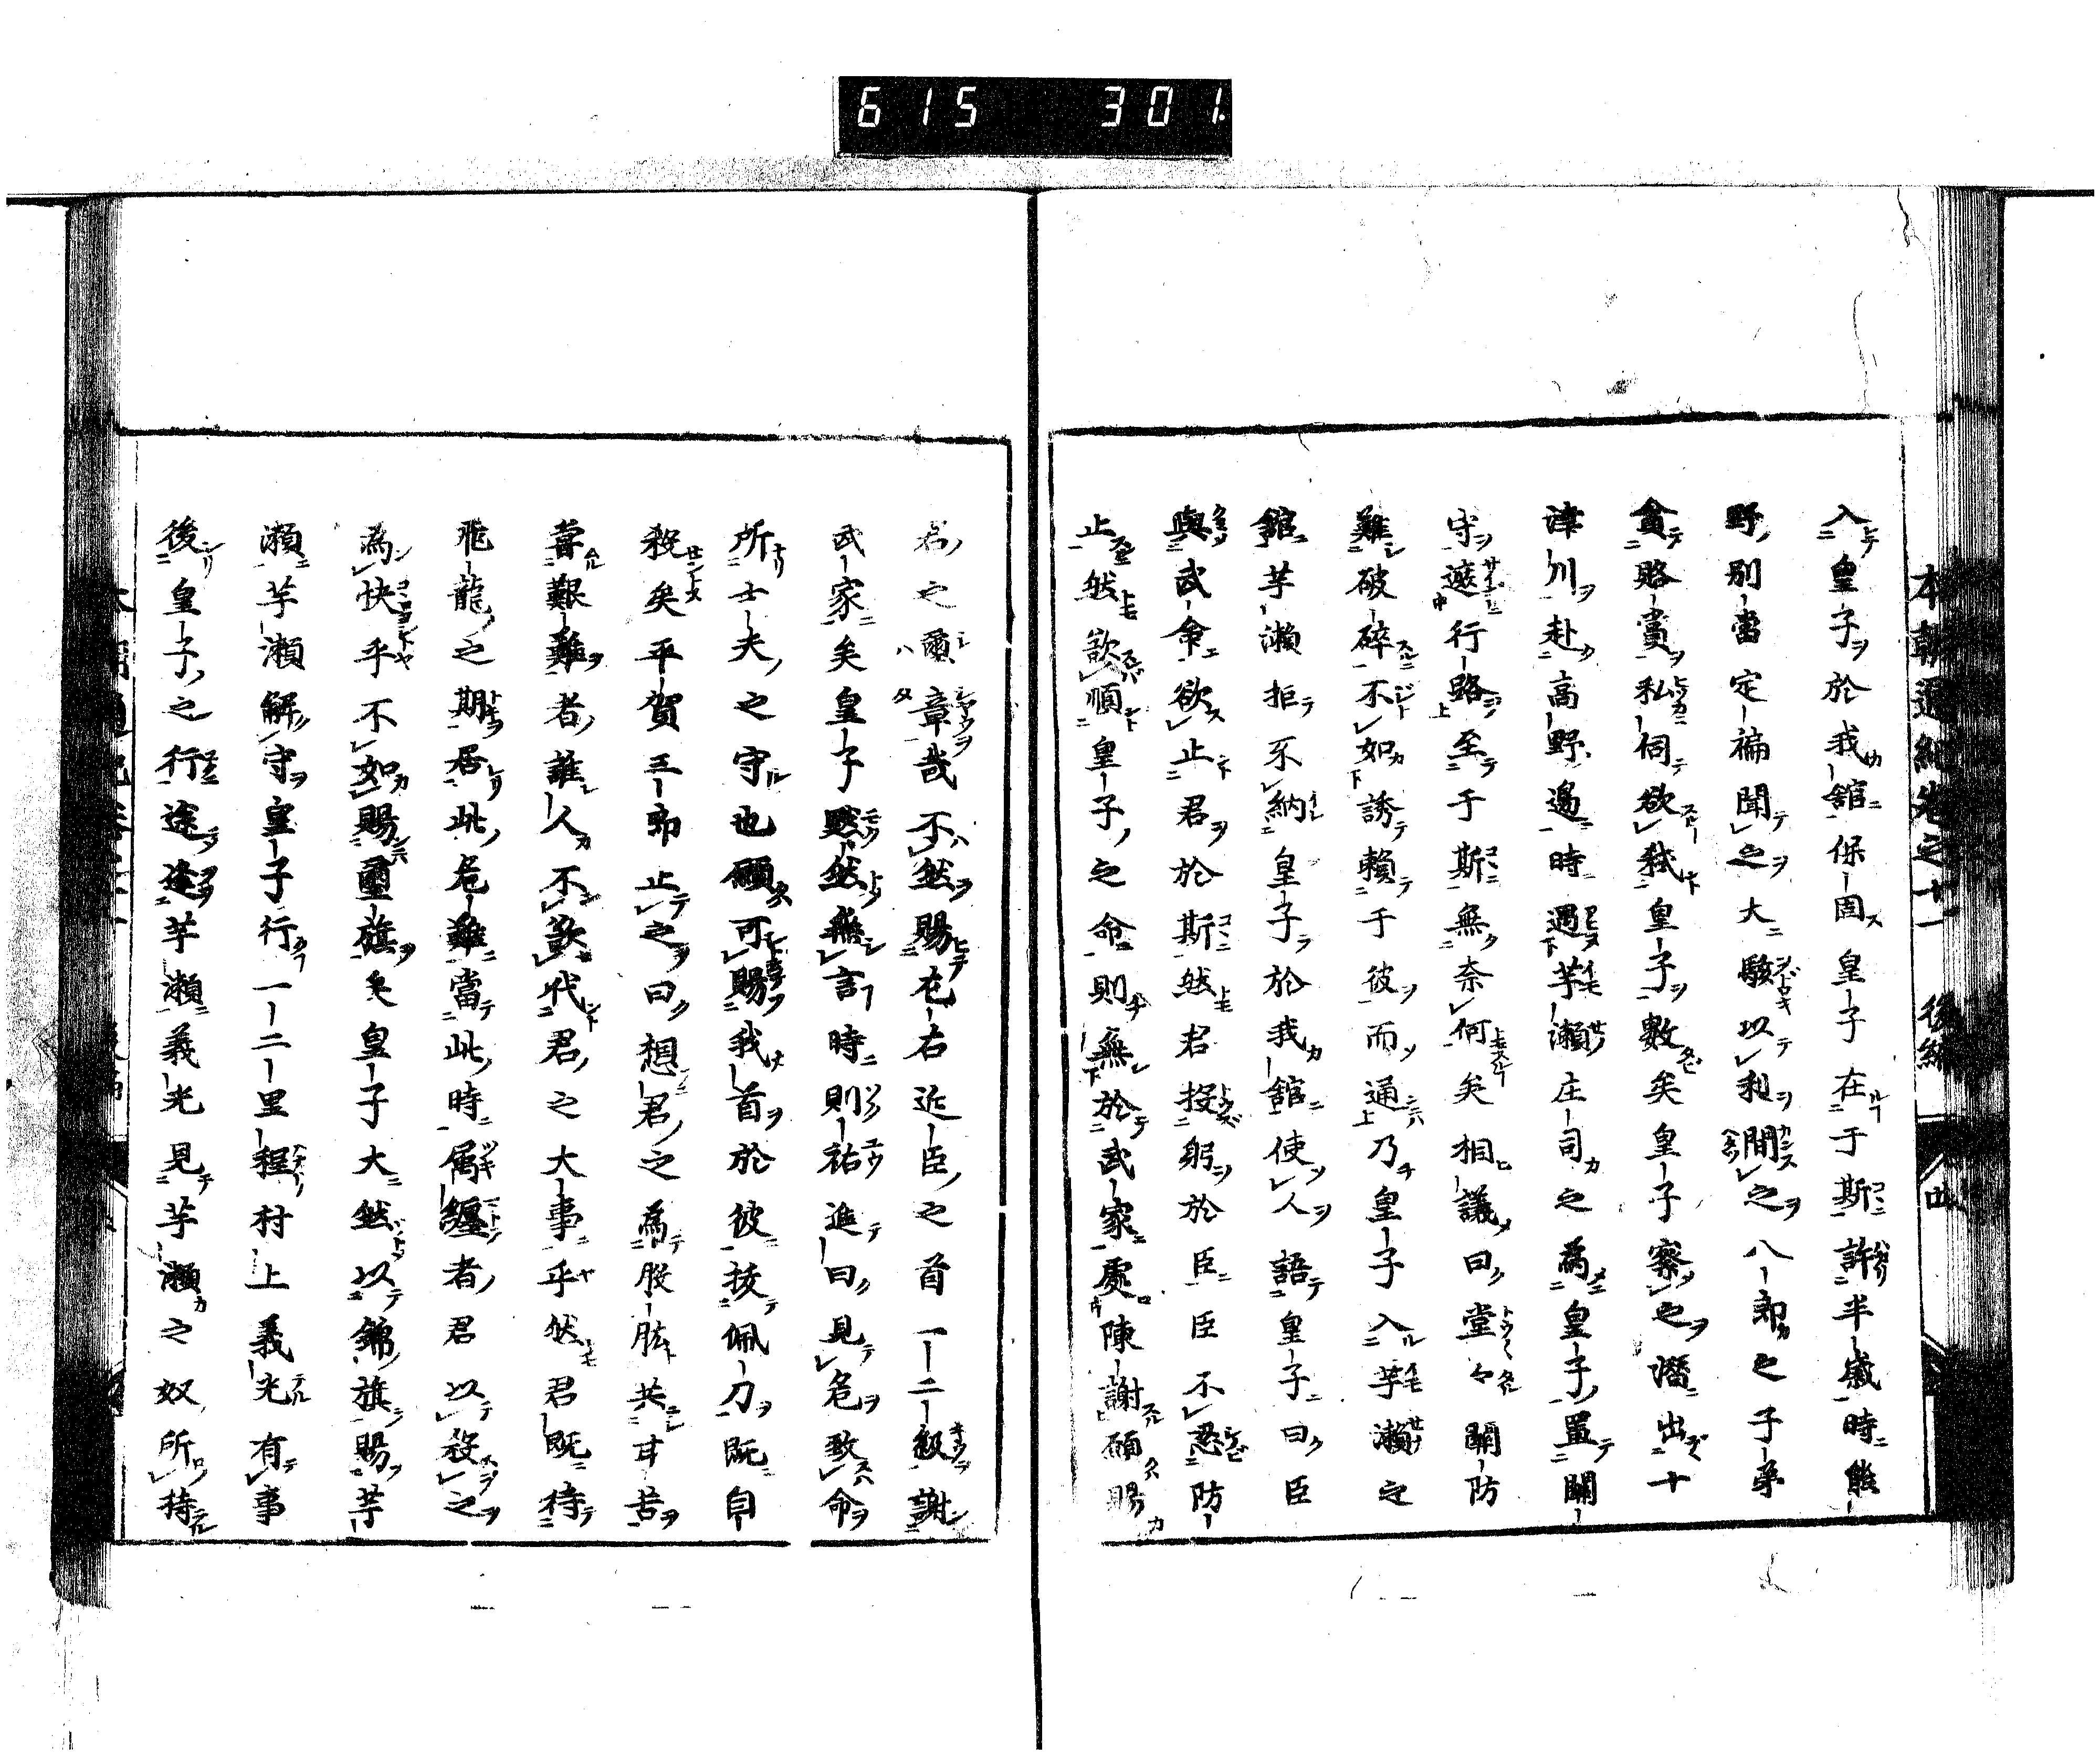 615 301
本朝通紀卷之十一 後編
入皇子於我舘保固皇子在于斯許半歲時熊
野別當定徧聞之大駭以利間之八郎之子弟
貪賂賣私伺欲弑皇子數矣皇子察之潛出十
津川赴高野過時遇芋瀬庄司之為皇子置關
守遮行路至于斯無奈何矣相議曰堂々關防
難破碎不如誘賴于彼而通乃皇子入芋瀬之
舘芋瀬拒不納皇子於我舘使人語皇子曰臣
與武命欲止君於斯然君投躬於臣臣不忍防
止然欲順皇子之命則無於武家處陳謝願賜
君之璽章哉不然賜左右近臣之首一二級謝
武家矣皇子默然無言時則祐進曰見危致命
所士夫之守也願可賜我首於彼拔佩刀既自
殺矣平賀三郎止之曰想君之為股肱共甘苦
嘗艱難者誰人不欲代君之大事乎然君既待
飛龍之期居此危難當此時屬纏者君以殺之
為快乎不如賜璽旗矣皇子大然以錦旗賜芋
瀬芋瀬解守皇子行一二里程村上義光有事
後皇子之行途逢芋瀬義光見芋瀬之奴所持